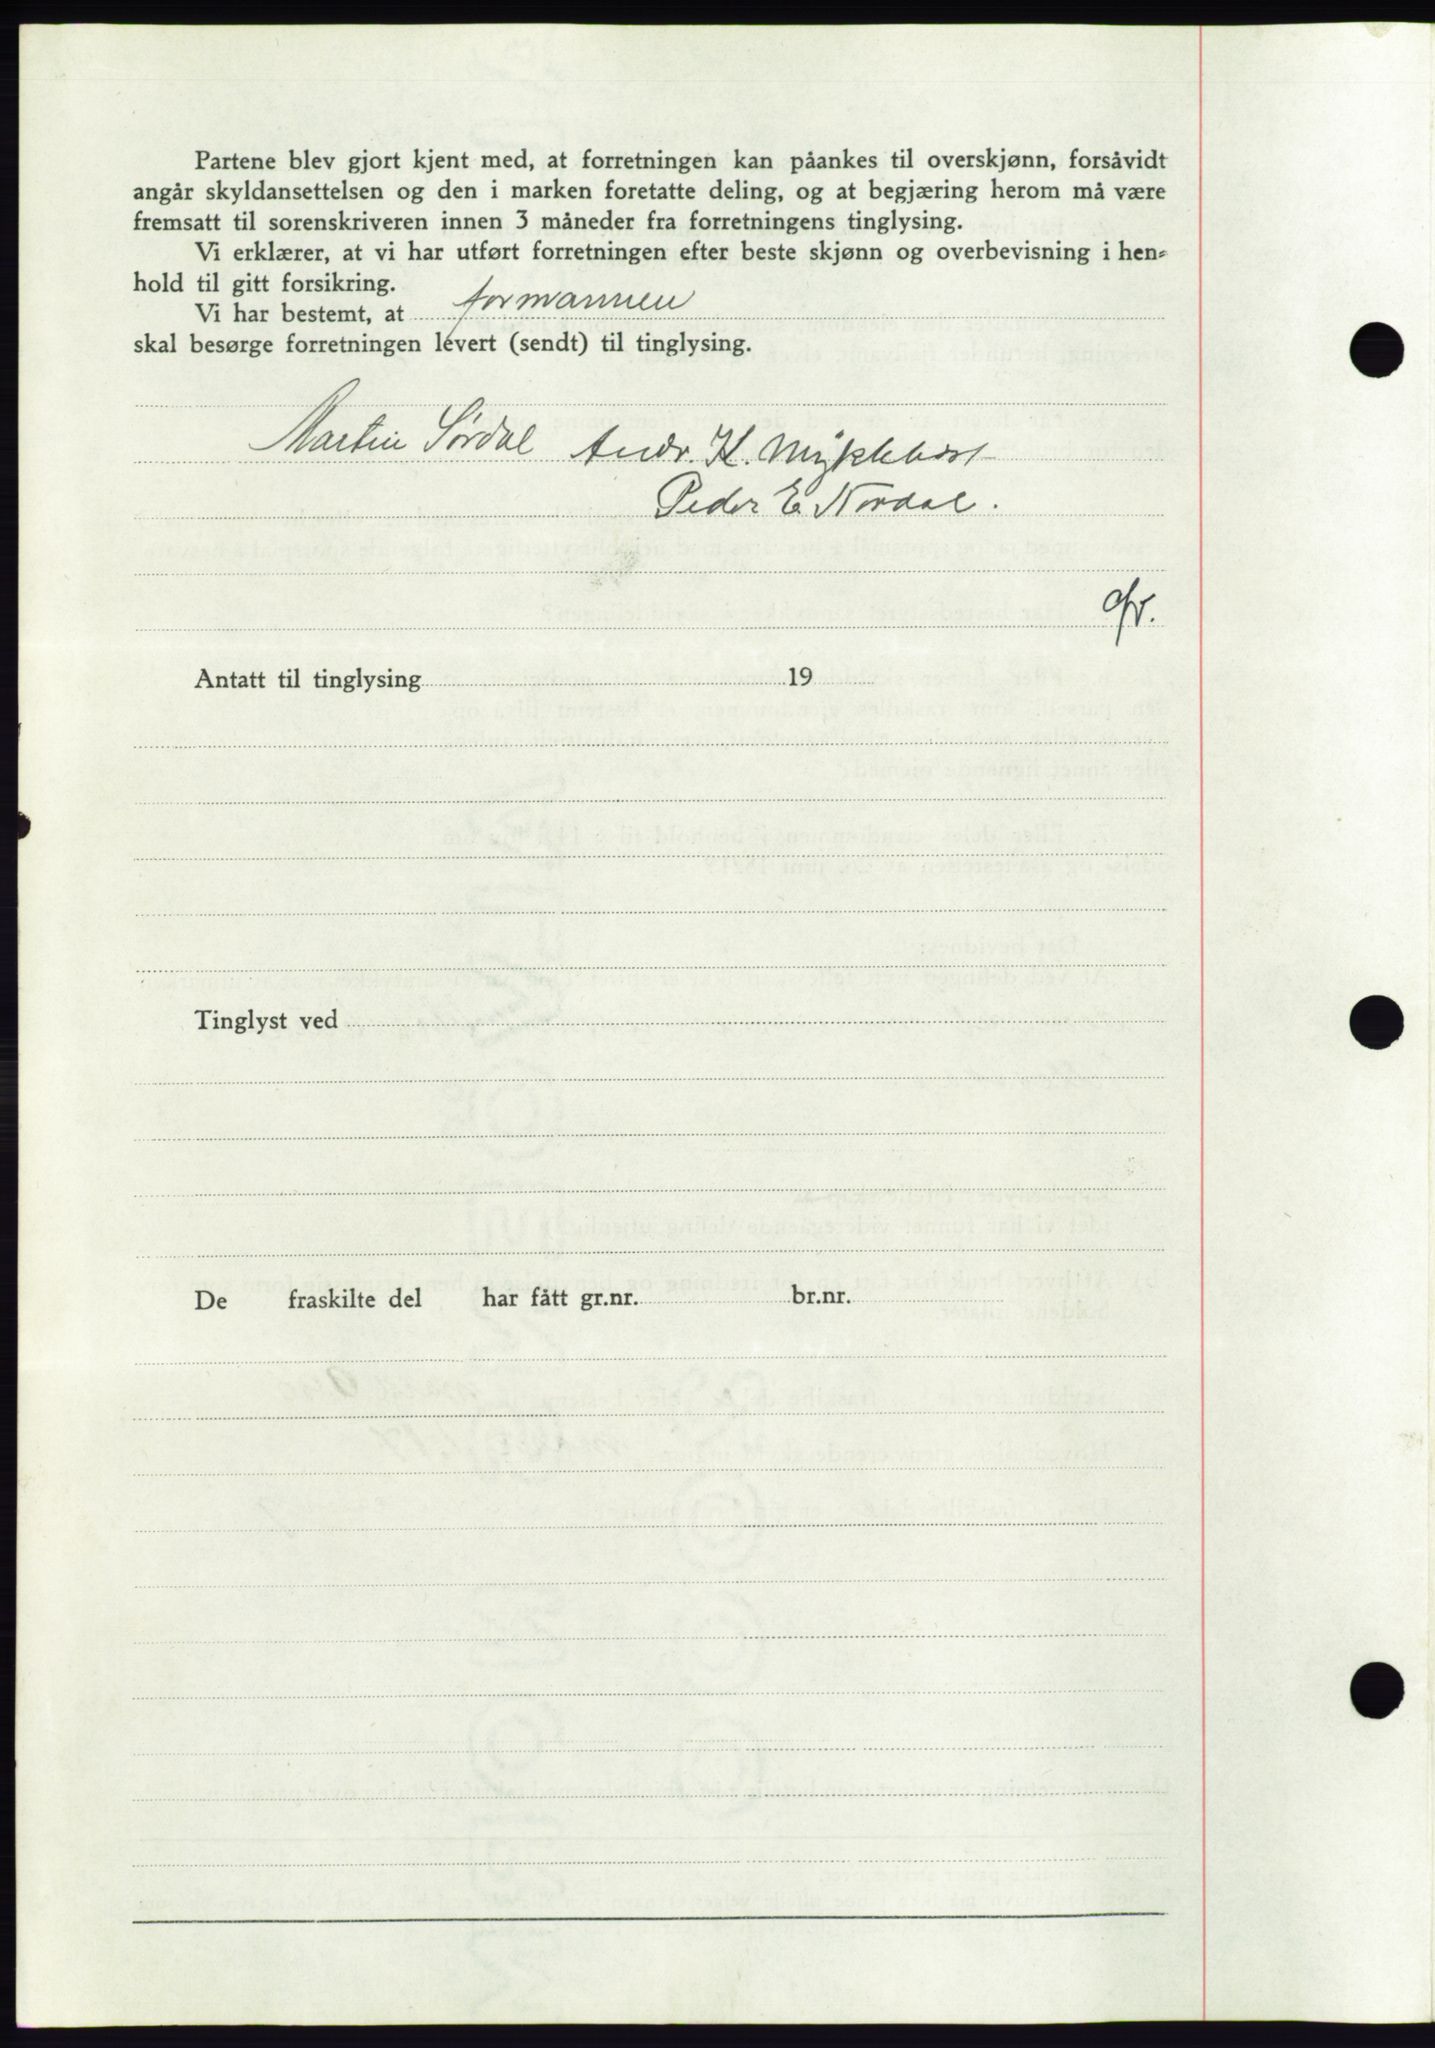 Partene blev gjort kjent med, at forretningen kan påankes til overskjønn, forsåvidt
angår skyldansettelsen og den i marken foretatte deling, og at begjæring herom må være
fremsatt til sorenskriveren innen 3 måneder fra forretningens tinglysing.
Vi erklærer, at vi har utført forretningen efter beste skjønn og overbevisning i hen-
hold til gitt forsikring.
Vi har bestemt, at formannen
skal besørge forretningen levert (sendt) til tinglysing.
Martin Sørdal Andr. K. Myklebost
Peder E. Nordal.
Antatt til tinglysing 19
Tinglyst ved
De fraskilte del har fått gr.nr. br.nr.